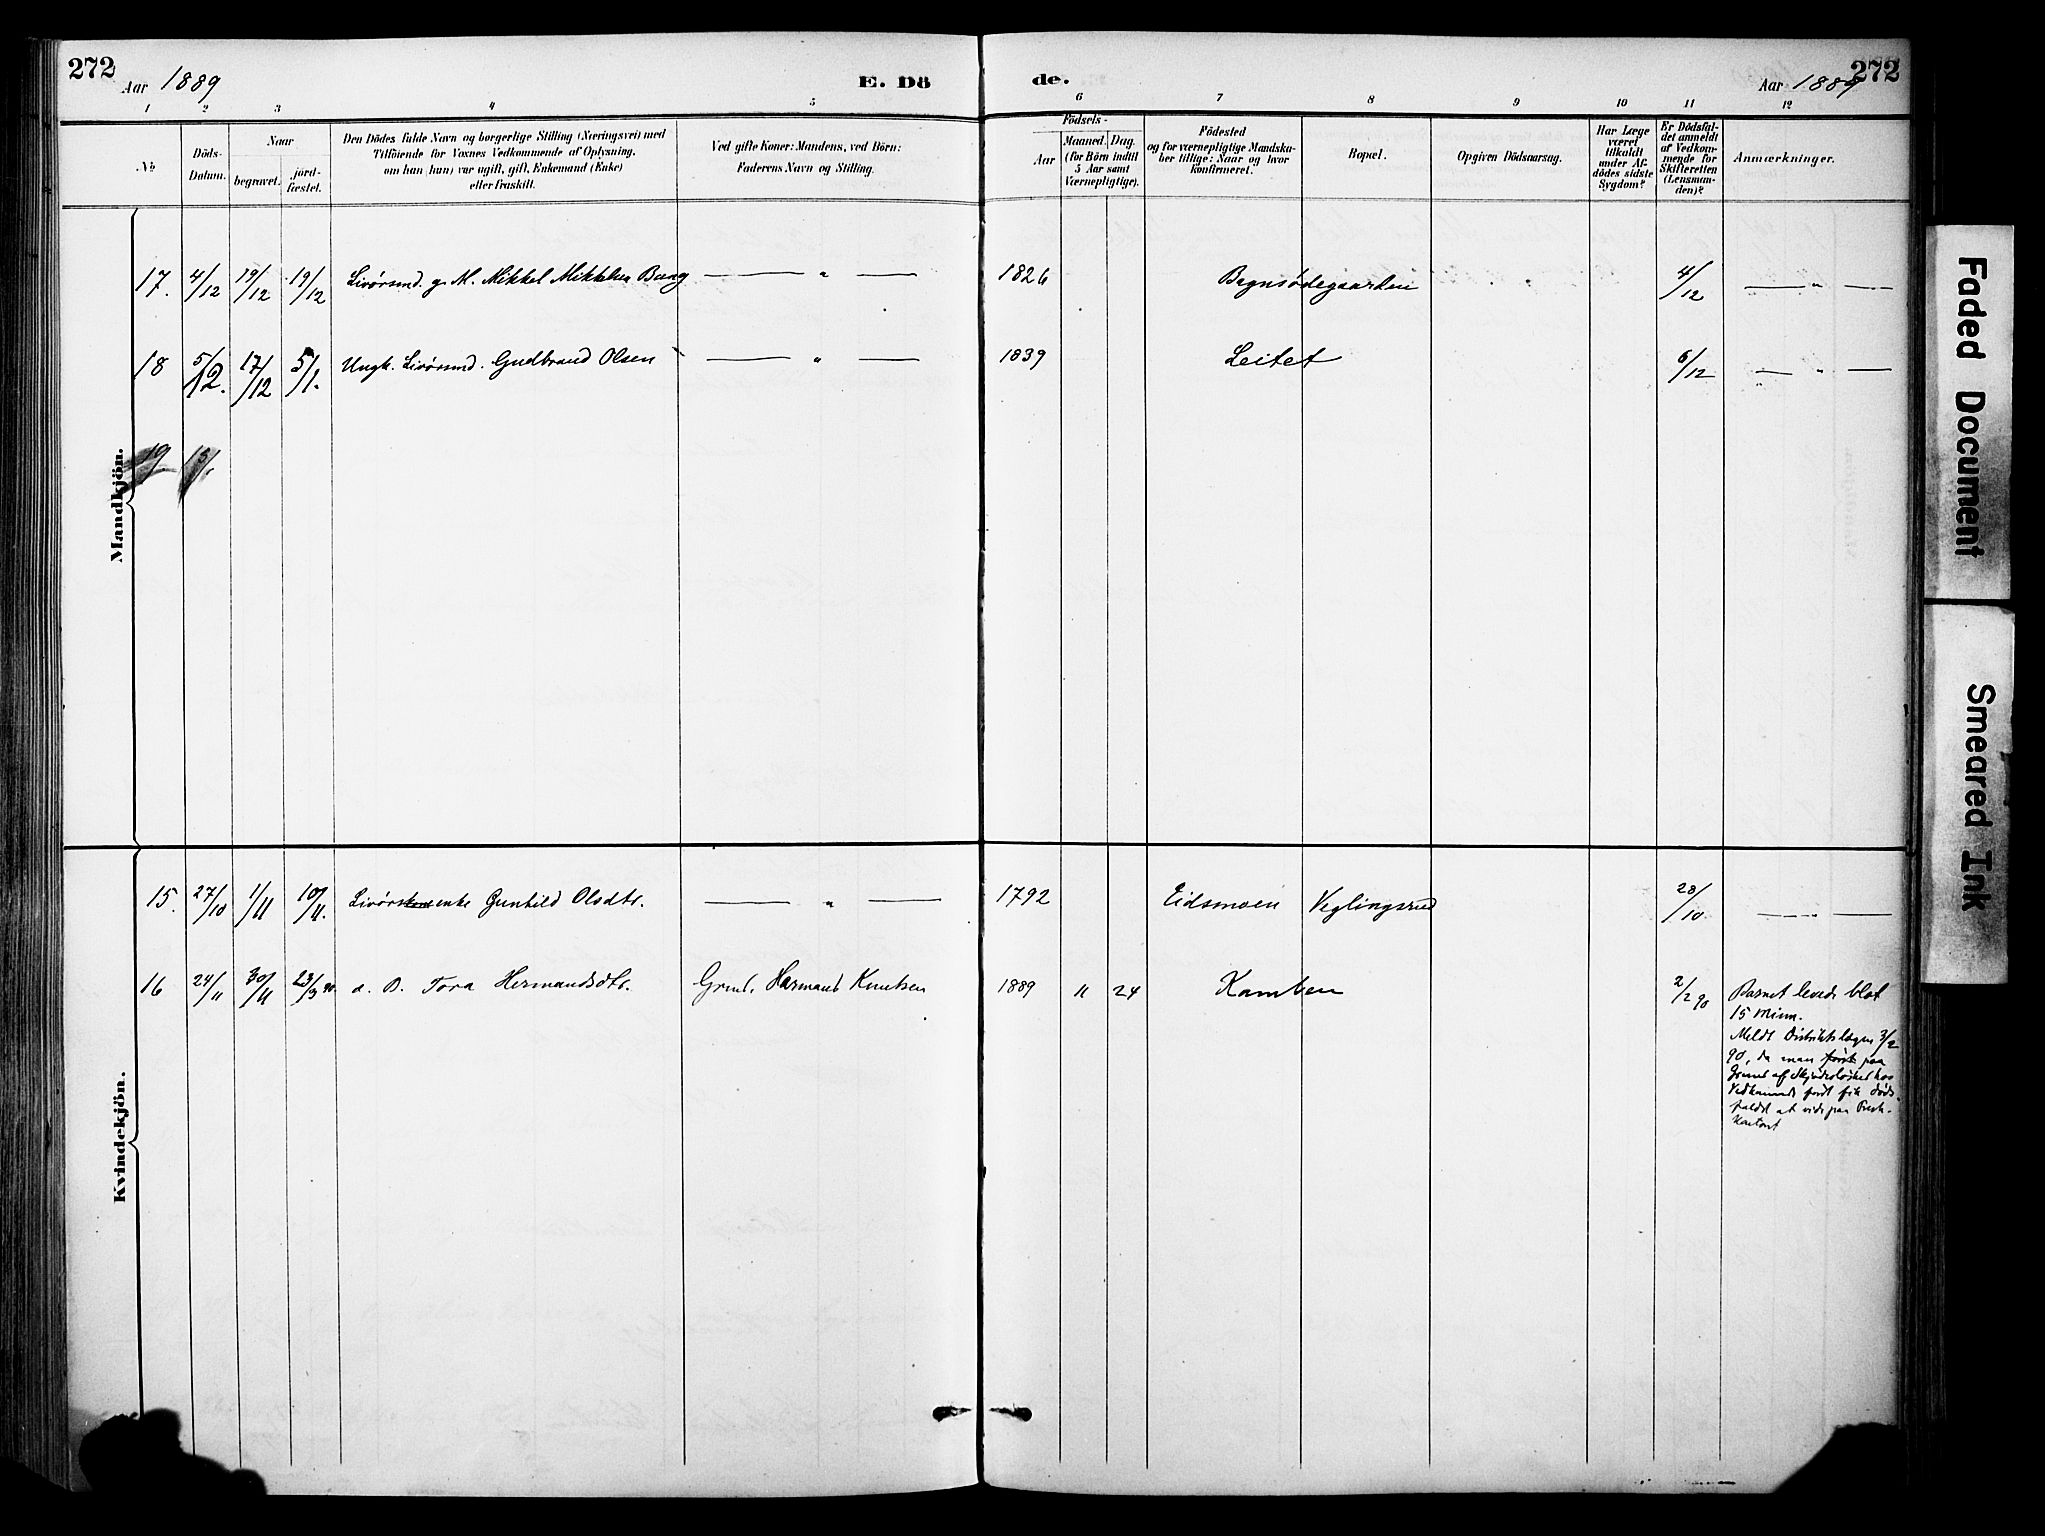 272
Aar 1889
E. Dö
de.
Aar 1889
272
1 2 3 4 5 6 7 8 9 10 11 12
No
Döds-
Datum.
Naar
begravet.
jord-
fæstet.
Den Dödes fulde Navn og borgerlige Stilling (Næringsvei) med
Tilföiende for Voxnes Vedkommende af Oplysning,
om han (hun) var ugift, gift, Enkemand (Enke)
eller fraskilt.
Ved gifte Koner: Mandens, ved Börn:
Faderens Navn og Stilling.
Födsels-
Aar
Maaned. Dag.
(for Börn indtil
5 Aar samt
Værnepligtige).
Födested
og for værnepligtige Mandska-
ber tillige: Naar og hvor
konfirmeret.
Bopæl.
Opgiven Dödsaarsag.
Har Læge
været
tilkaldt
under Af-
dödes sidste
Sygdom?
Er Dödsfal-
det anmeldt
af Vedkom-
mende for
Skifteretten
(Lensman-
den)?
Anmærkninger.
Mandkjön.
17. 4/12 19/12 19/12 Livørsmd. g. M. Mikkel Mikkelsen Bang — " — 1826 Bagnsødegaarden 4/12 — " —
18 5/12. 17/12 5/1. Ungk. Livørsmd. Gudbrand Olsen — " — 1839 Leitet 6/12 — " —
19 15/
Kvindekjön.
15. 27/10 1/11 10/11. Livørskone enke Gunhild Olsdtr. — " — 1792 Eidsmoen Veglingsrud 28/10 — " —
16 24/11 30/11 23/3 90. d. B. Tora Hermandsdtr. Grmd. Harmand Knutsen 1889 11 24 Kamben 2/2 90 Barnet levede blot
15 Minn.
Meldt Distriktslægen 3/2
90, da man først paa
Grund af Skjødesløshed hos
Vedkommende først fik døds-
faldet at vide paa Prest-
kontoret
Faded Document
Smeared Ink